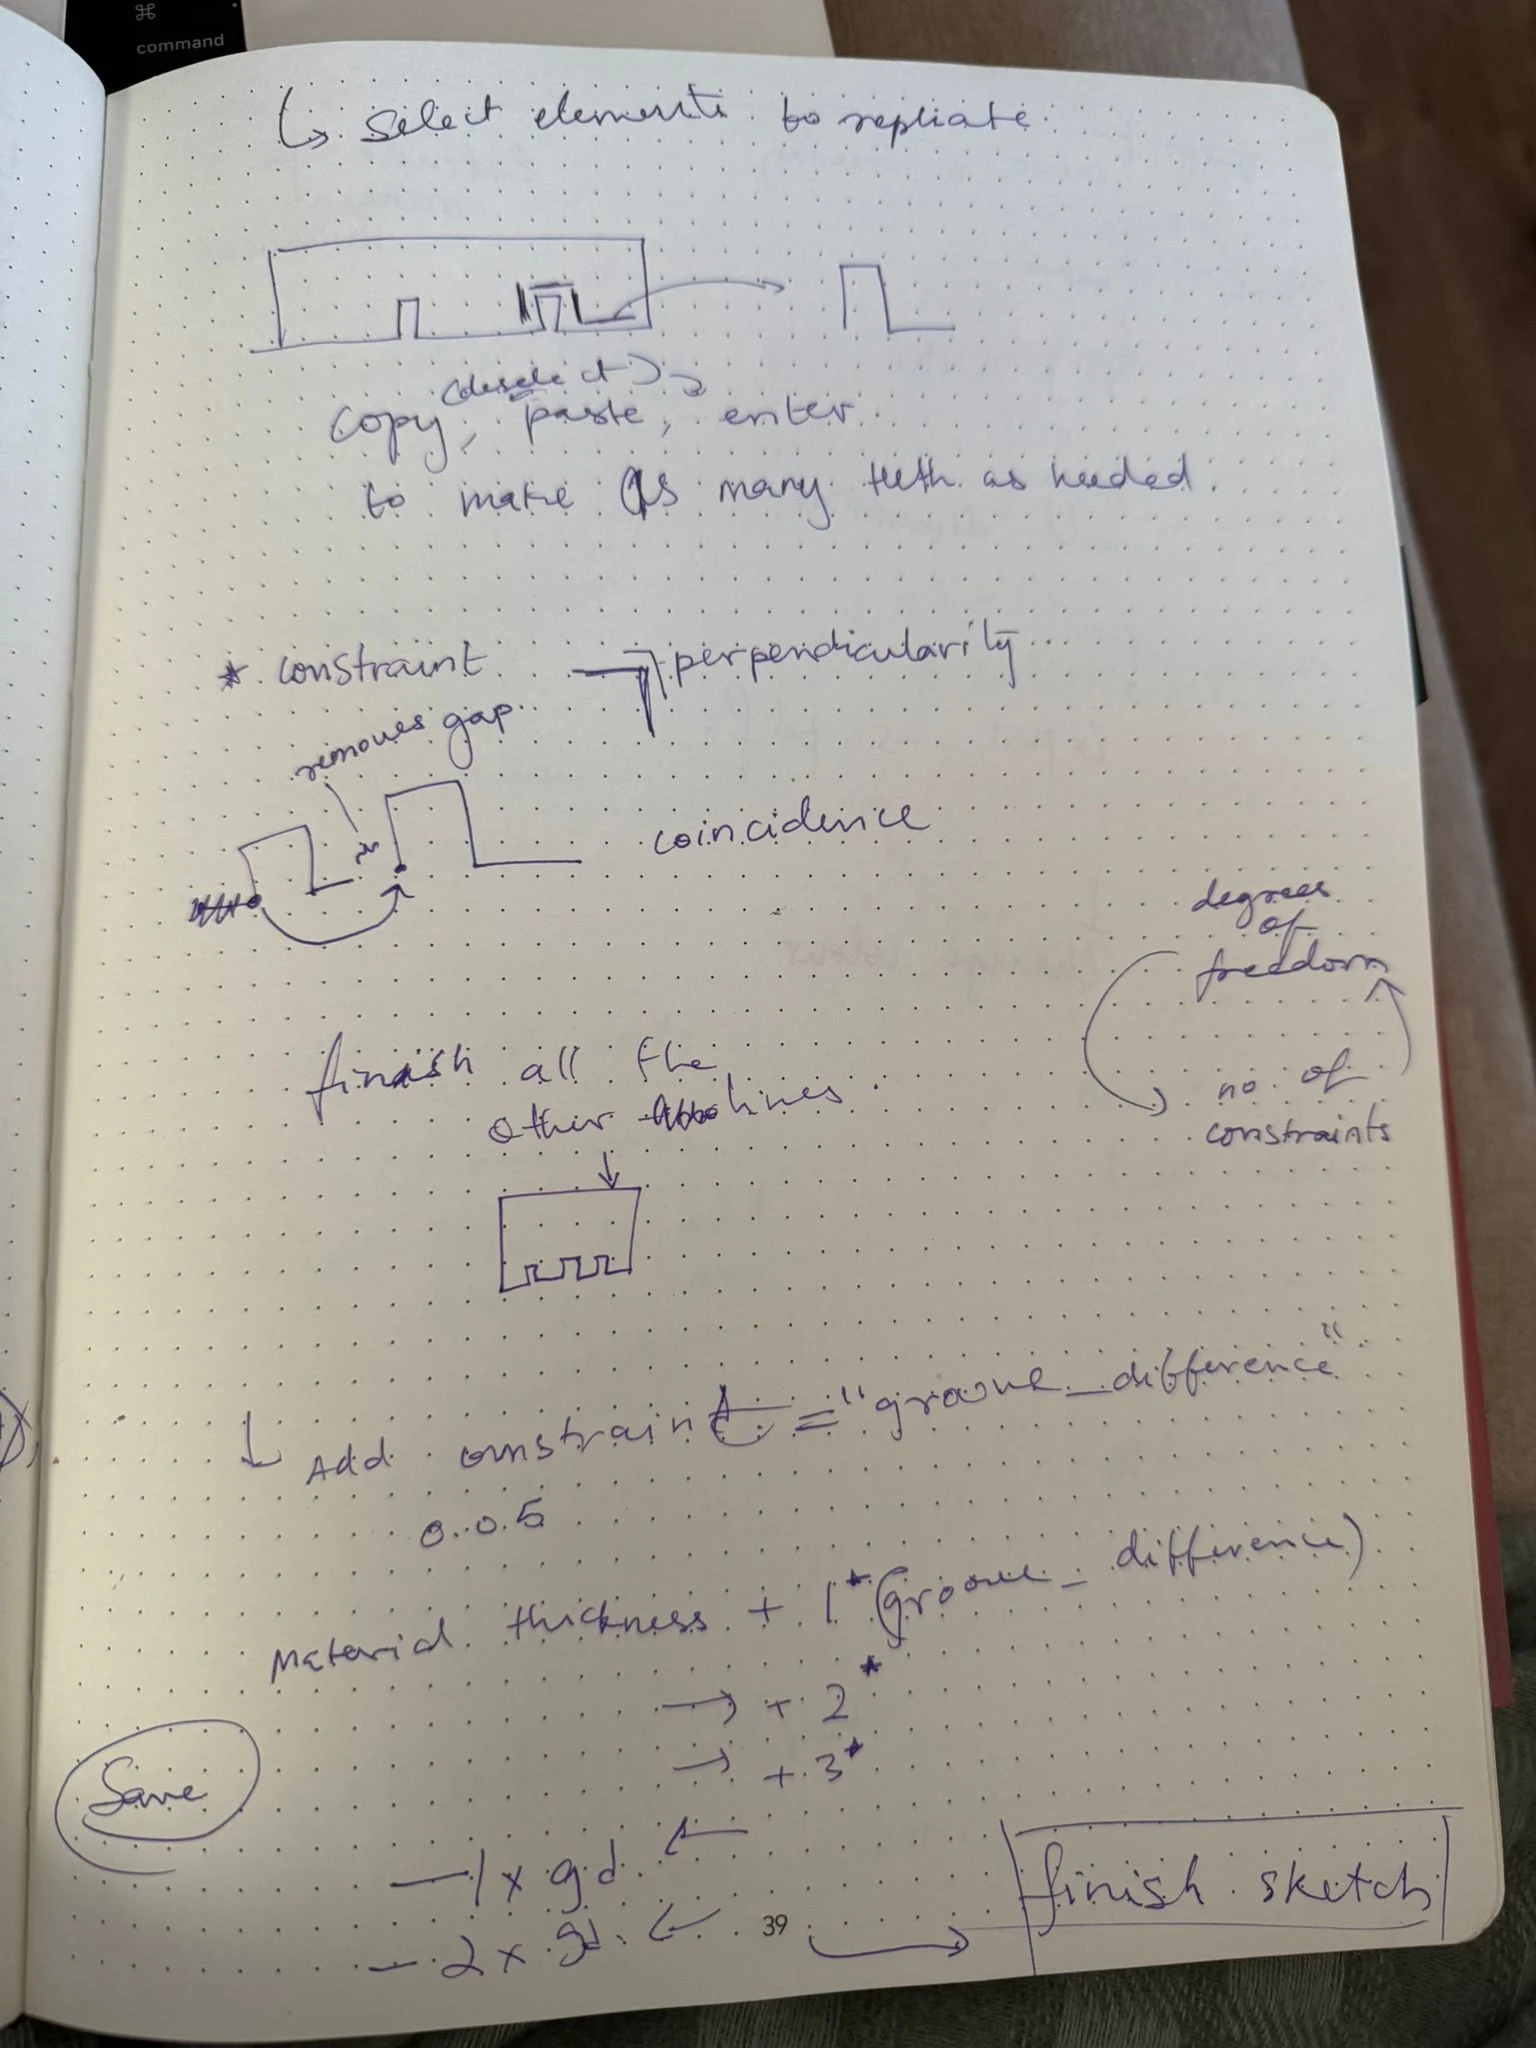 ⌘
command
↳ select elements to repliate
(deselect)
copy, paste, enter
to make as many teeth as needed
* constraint perpendicularity
removes gap
coincidence
degrees
of
freedom
no of
constraints
finish all the
other lines
↓ Add constraint = "groove_difference"
0.05
Material thickness + 1*(groove_difference)
→ + 2*
→ + 3*
Save
-1 x gd ←
-2 x gd ←
39
finish sketch